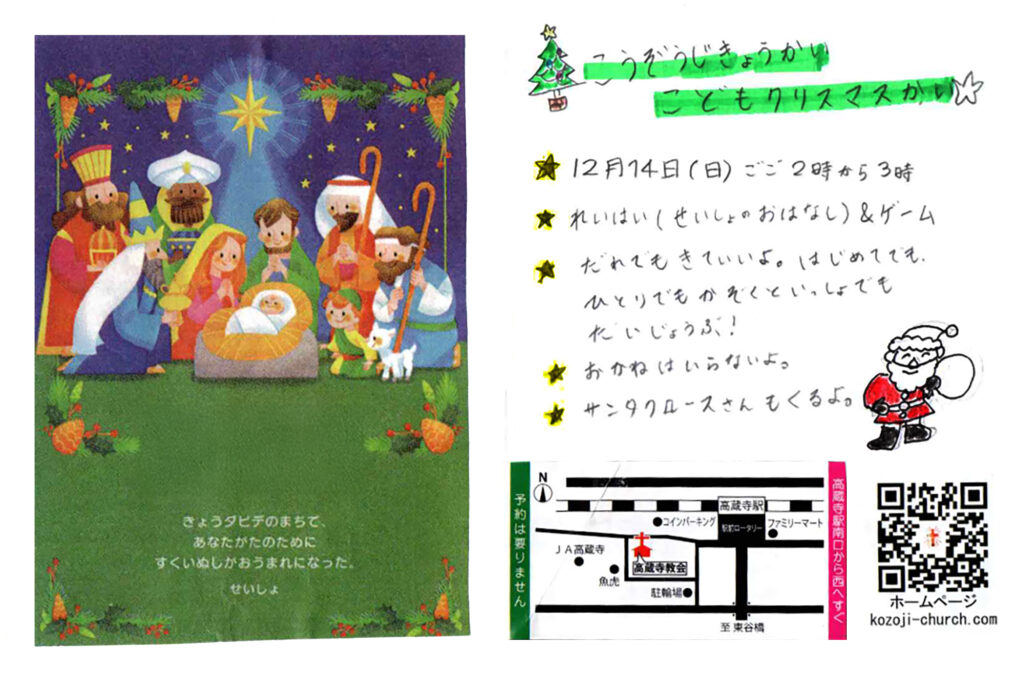 きょうダビデのまちで、
あなたがたのために
すくいぬしがおうまれになった。
せいしょ
こうぞうじきょうかい
こどもクリスマスかい
12月14日(日)ごご2時から3時
れいはい(せいしょのおはなし)&ゲーム
だれでもきていいよ。はじめてでも、
ひとりでもかぞくといっしょでも
だいじょうぶ!
おかねはいらないよ。
サンタクロースさんもくるよ。
予約は要りません
N
高蔵寺駅
コインパーキング
駅前ロータリー
ファミリーマート
JA高蔵寺
魚虎
高蔵寺教会
駐輪場
至 東谷橋
高蔵寺駅南口から西へすぐ
ホームページ
kozoji-church.com